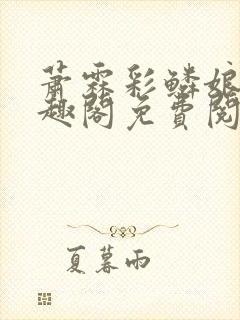 萧霖彩鳞娘
趣阁免費閱
夏暮雨